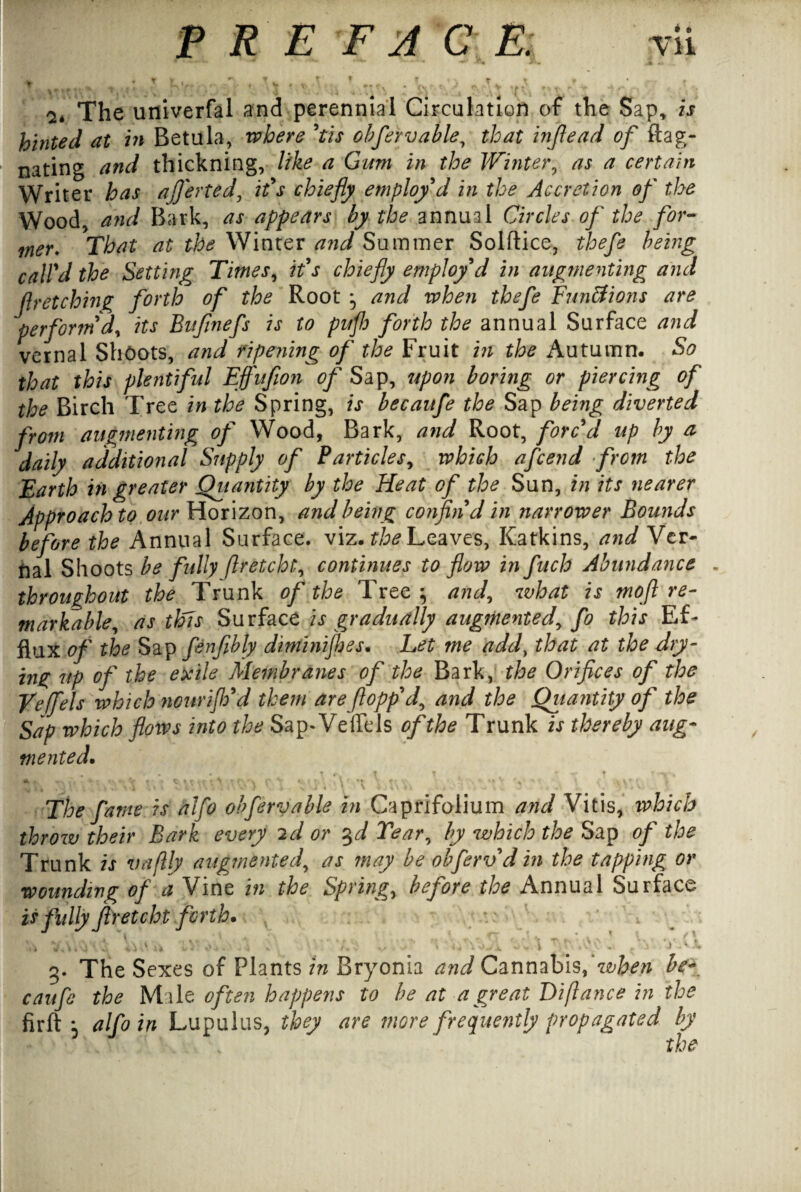 PREFACE. vii
2. The univerſal and perennial Circulation of the Sap, is
hinted at in Betula, where 'tis obſervable, that inſtead of ſtag-
nating and thickning, like a Gum in the Winter, as a certain
Writer has aſſerted, it's chiefly employ'd in the Accretion of the
Wood, and Bark, as appears by the annual Circles of the for-
mer. That at the Winter and Summer Solſtice, theſe being
call'd the Setting Times, it's chiefly employ'd in augmenting and
ſtretching forth of the Root ; and when theſe Functions are
perform'd, its Buſineſs is to puſh forth the annual Surface and
vernal Shoots, and ripening of the Fruit in the Autumn. So
that this plentiful Effuſion of Sap, upon boring or piercing of
the Birch Tree in the Spring, is becauſe the Sap being diverted
from augmenting of Wood, Bark, and Root, forc'd up by a
daily additional Supply of Particles, which aſcend from the
Earth in greater Quantity by the Heat of the Sun, in its nearer
Approach to our Horizon, and being confin'd in narrower Bounds
before the Annual Surface. viz. the Leaves, Katkins, and Ver-
nal Shoots be fully ſtretcht, continues to flow in ſuch Abundance
throughout the Trunk of the Tree ; and, what is moſt re-
markable, as this Surface is gradually augmented, ſo this Ef-
flux of the Sap ſenſibly diminiſhes. Let me add, that at the dry-
ing up of the exile Membranes of the Bark, the Orifices of the
Veſſels which nouriſh'd them are ſtopp'd, and the Quantity of the
Sap which flows into the Sap-Veſſels of the Trunk is thereby aug-
mented.
The ſame is alſo obſervable in Caprifolium and Vitis, which
throw their Bark every 2d or 3d Year, by which the Sap of the
Trunk is vaſtly augmented, as may be obſerv'd in the tapping or
wounding of a Vine in the Spring, before the Annual Surface
is fully ſtretcht forth.
3. The Sexes of Plants in Bryonia and Cannabis, when be-
cauſe the Male often happens to be at a great Diſtance in the
firſt ; alſo in Lupulus, they are more frequently propagated by
the